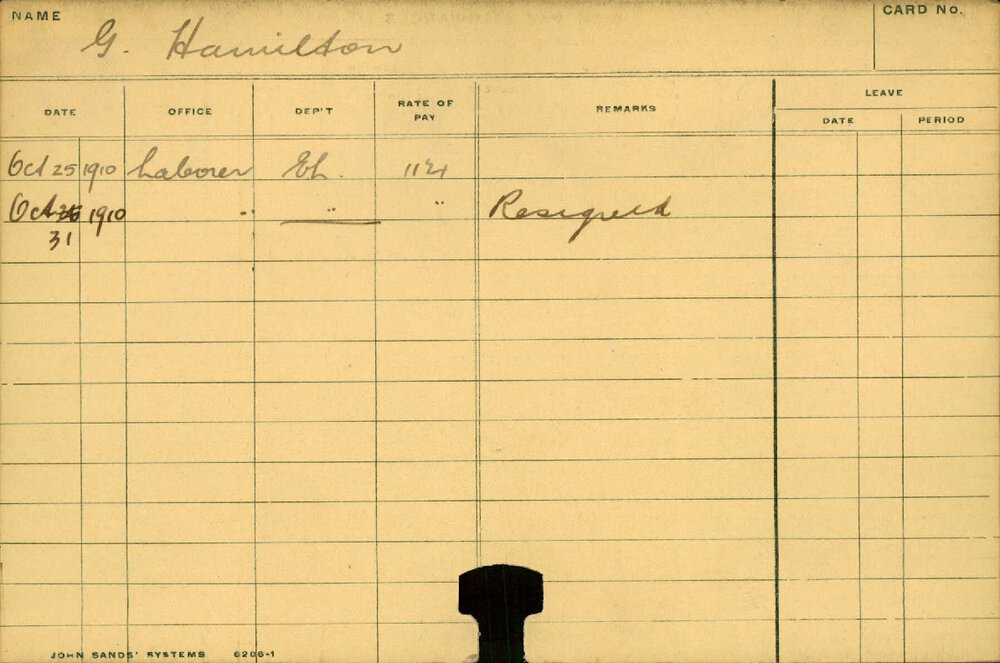 NAME G. Hamilton CARD No.
DATE OFFICE DEP'T RATE OF PAY REMARKS LEAVE
DATE PERIOD
Oct 25 1910 Laborer
Oct 26 1910 " " " Resigned
31
JOHN SANDS' SYSTEMS 6206-1